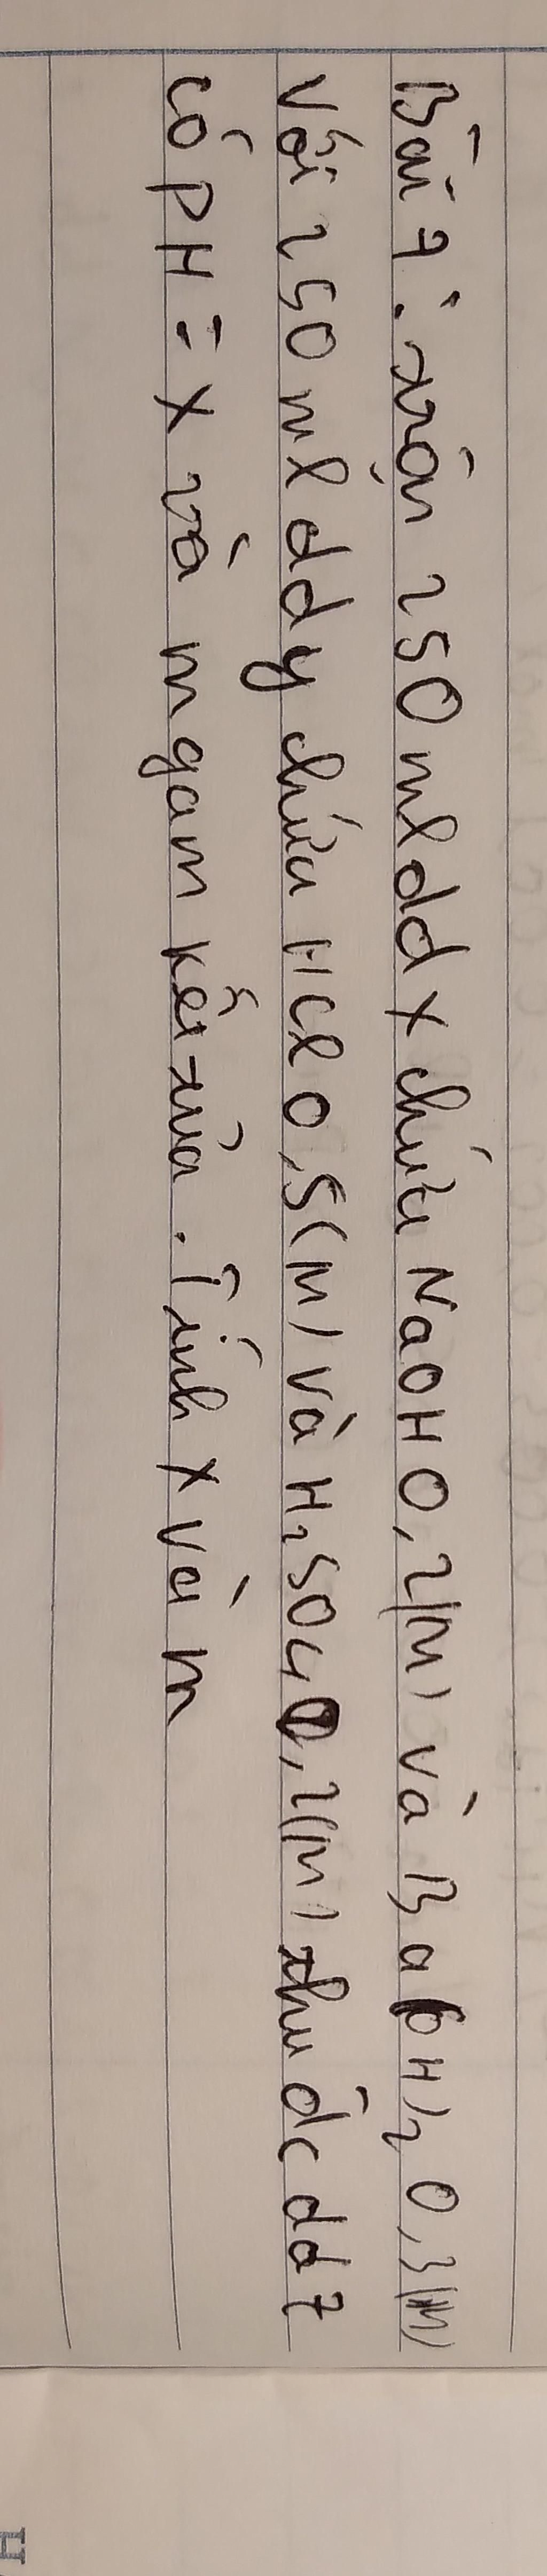 Bài 7: trộn 250 ml dd x chứa NaOH 0,2(M) và Ba(OH)2 0,3(M)
với 250 ml dd y chứa HCl 0,5(M) và H2SO4 0,2(M) thu đc dd z
có pH = x và m gam kết tủa. Tính x và m